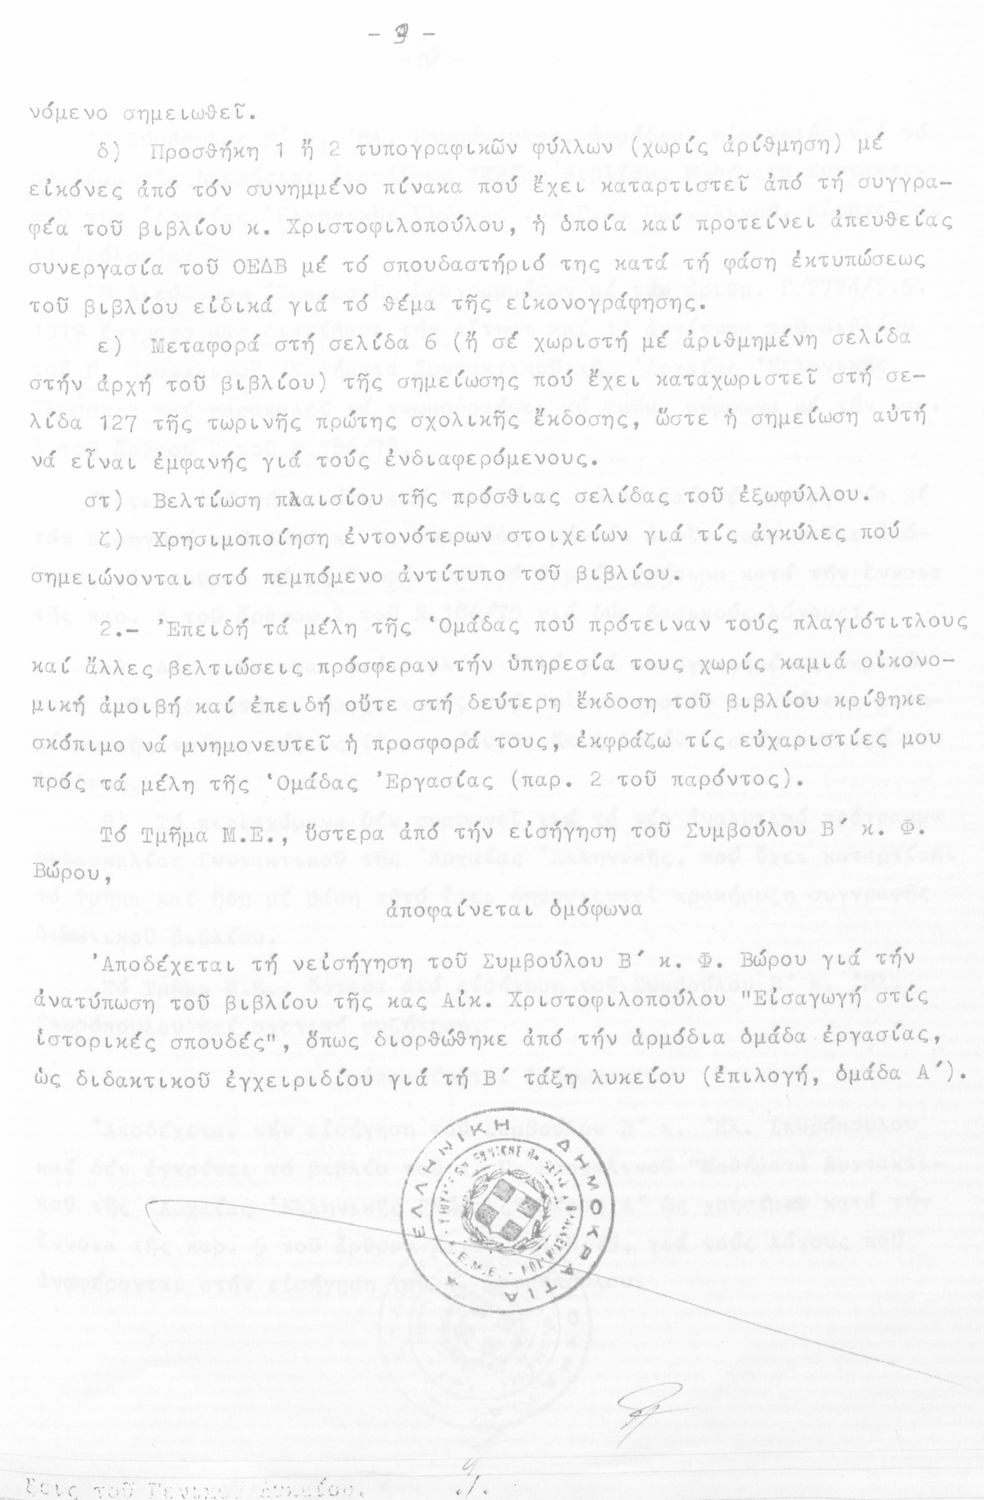 - 9 -
νόμενο σημειωθεῖ.
δ) Προσθήκη 1 ἤ 2 τυπογραφικῶν φύλλων (χωρίς ἀρίθμηση) μέ
εἰκόνες ἀπό τόν συνημμένο πίνακα πού ἔχει καταρτιστεῖ ἀπό τή συγγρα-
φέα τοῦ βιβλίου κ. Χριστοφιλοπούλου, ἡ ὁποία καί προτείνει ἀπευθείας
συνεργασία τοῦ ΟΕΔΒ μέ τό σπουδαστήριό της κατά τή φάση ἐκτυπώσεως
τοῦ βιβλίου εἰδικά γιά τό θέμα τῆς εἰκονογράφησης.
ε) Μεταφορά στή σελίδα 6 (ἤ σέ χωριστή μέ ἀριθμημένη σελίδα
στήν ἀρχή τοῦ βιβλίου) τῆς σημείωσης πού ἔχει καταχωριστεῖ στή σε-
λίδα 127 τῆς τωρινῆς πρώτης σχολικῆς ἔκδοσης, ὥστε ἡ σημείωση αὐτή
νά εἶναι ἐμφανής γιά τούς ἐνδιαφερόμενους.
στ) Βελτίωση πλαισίου τῆς πρόσθιας σελίδας τοῦ ἐξωφύλλου.
ζ) Χρησιμοποίηση ἐντονότερων στοιχείων γιά τίς ἀγκύλες πού
σημειώνονται στό πεμπόμενο ἀντίτυπο τοῦ βιβλίου.
2.- Ἐπειδή τά μέλη τῆς Ὁμάδας πού πρότειναν τούς πλαγιότιτλους
καί ἄλλες βελτιώσεις πρόσφεραν τήν ὑπηρεσία τους χωρίς καμιά οἰκονο-
μική ἀμοιβή καί ἐπειδή οὔτε στή δεύτερη ἔκδοση τοῦ βιβλίου κρίθηκε
σκόπιμο νά μνημονευτεῖ ἡ προσφορά τους, ἐκφράζω τίς εὐχαριστίες μου
πρός τά μέλη τῆς Ὁμάδας Ἐργασίας (παρ. 2 τοῦ παρόντος).
Τό Τμῆμα Μ.Ε., ὕστερα ἀπό τήν εἰσήγηση τοῦ Συμβούλου Β΄ κ. Φ.
Βώρου,
ἀποφαίνεται ὁμόφωνα
Ἀποδέχεται τή νεἰσήγηση τοῦ Συμβούλου Β΄ κ. Φ. Βώρου γιά τήν
ἀνατύπωση τοῦ βιβλίου τῆς κας Αἰκ. Χριστοφιλοπούλου "Εἰσαγωγή στίς
ἱστορικές σπουδές", ὅπως διορθώθηκε ἀπό τήν ἁρμόδια ὁμάδα ἐργασίας,
ὡς διδακτικοῦ ἐγχειριδίου γιά τή Β΄ τάξη λυκείου (ἐπιλογή, ὁμάδα Α΄).
ΕΛΛΗΝΙΚΗ ΔΗΜΟΚΡΑΤΙΑ
Κ.Ε.Μ.Ε.
ξεις τοῦ Γενικοῦ Λυκείου.
./.